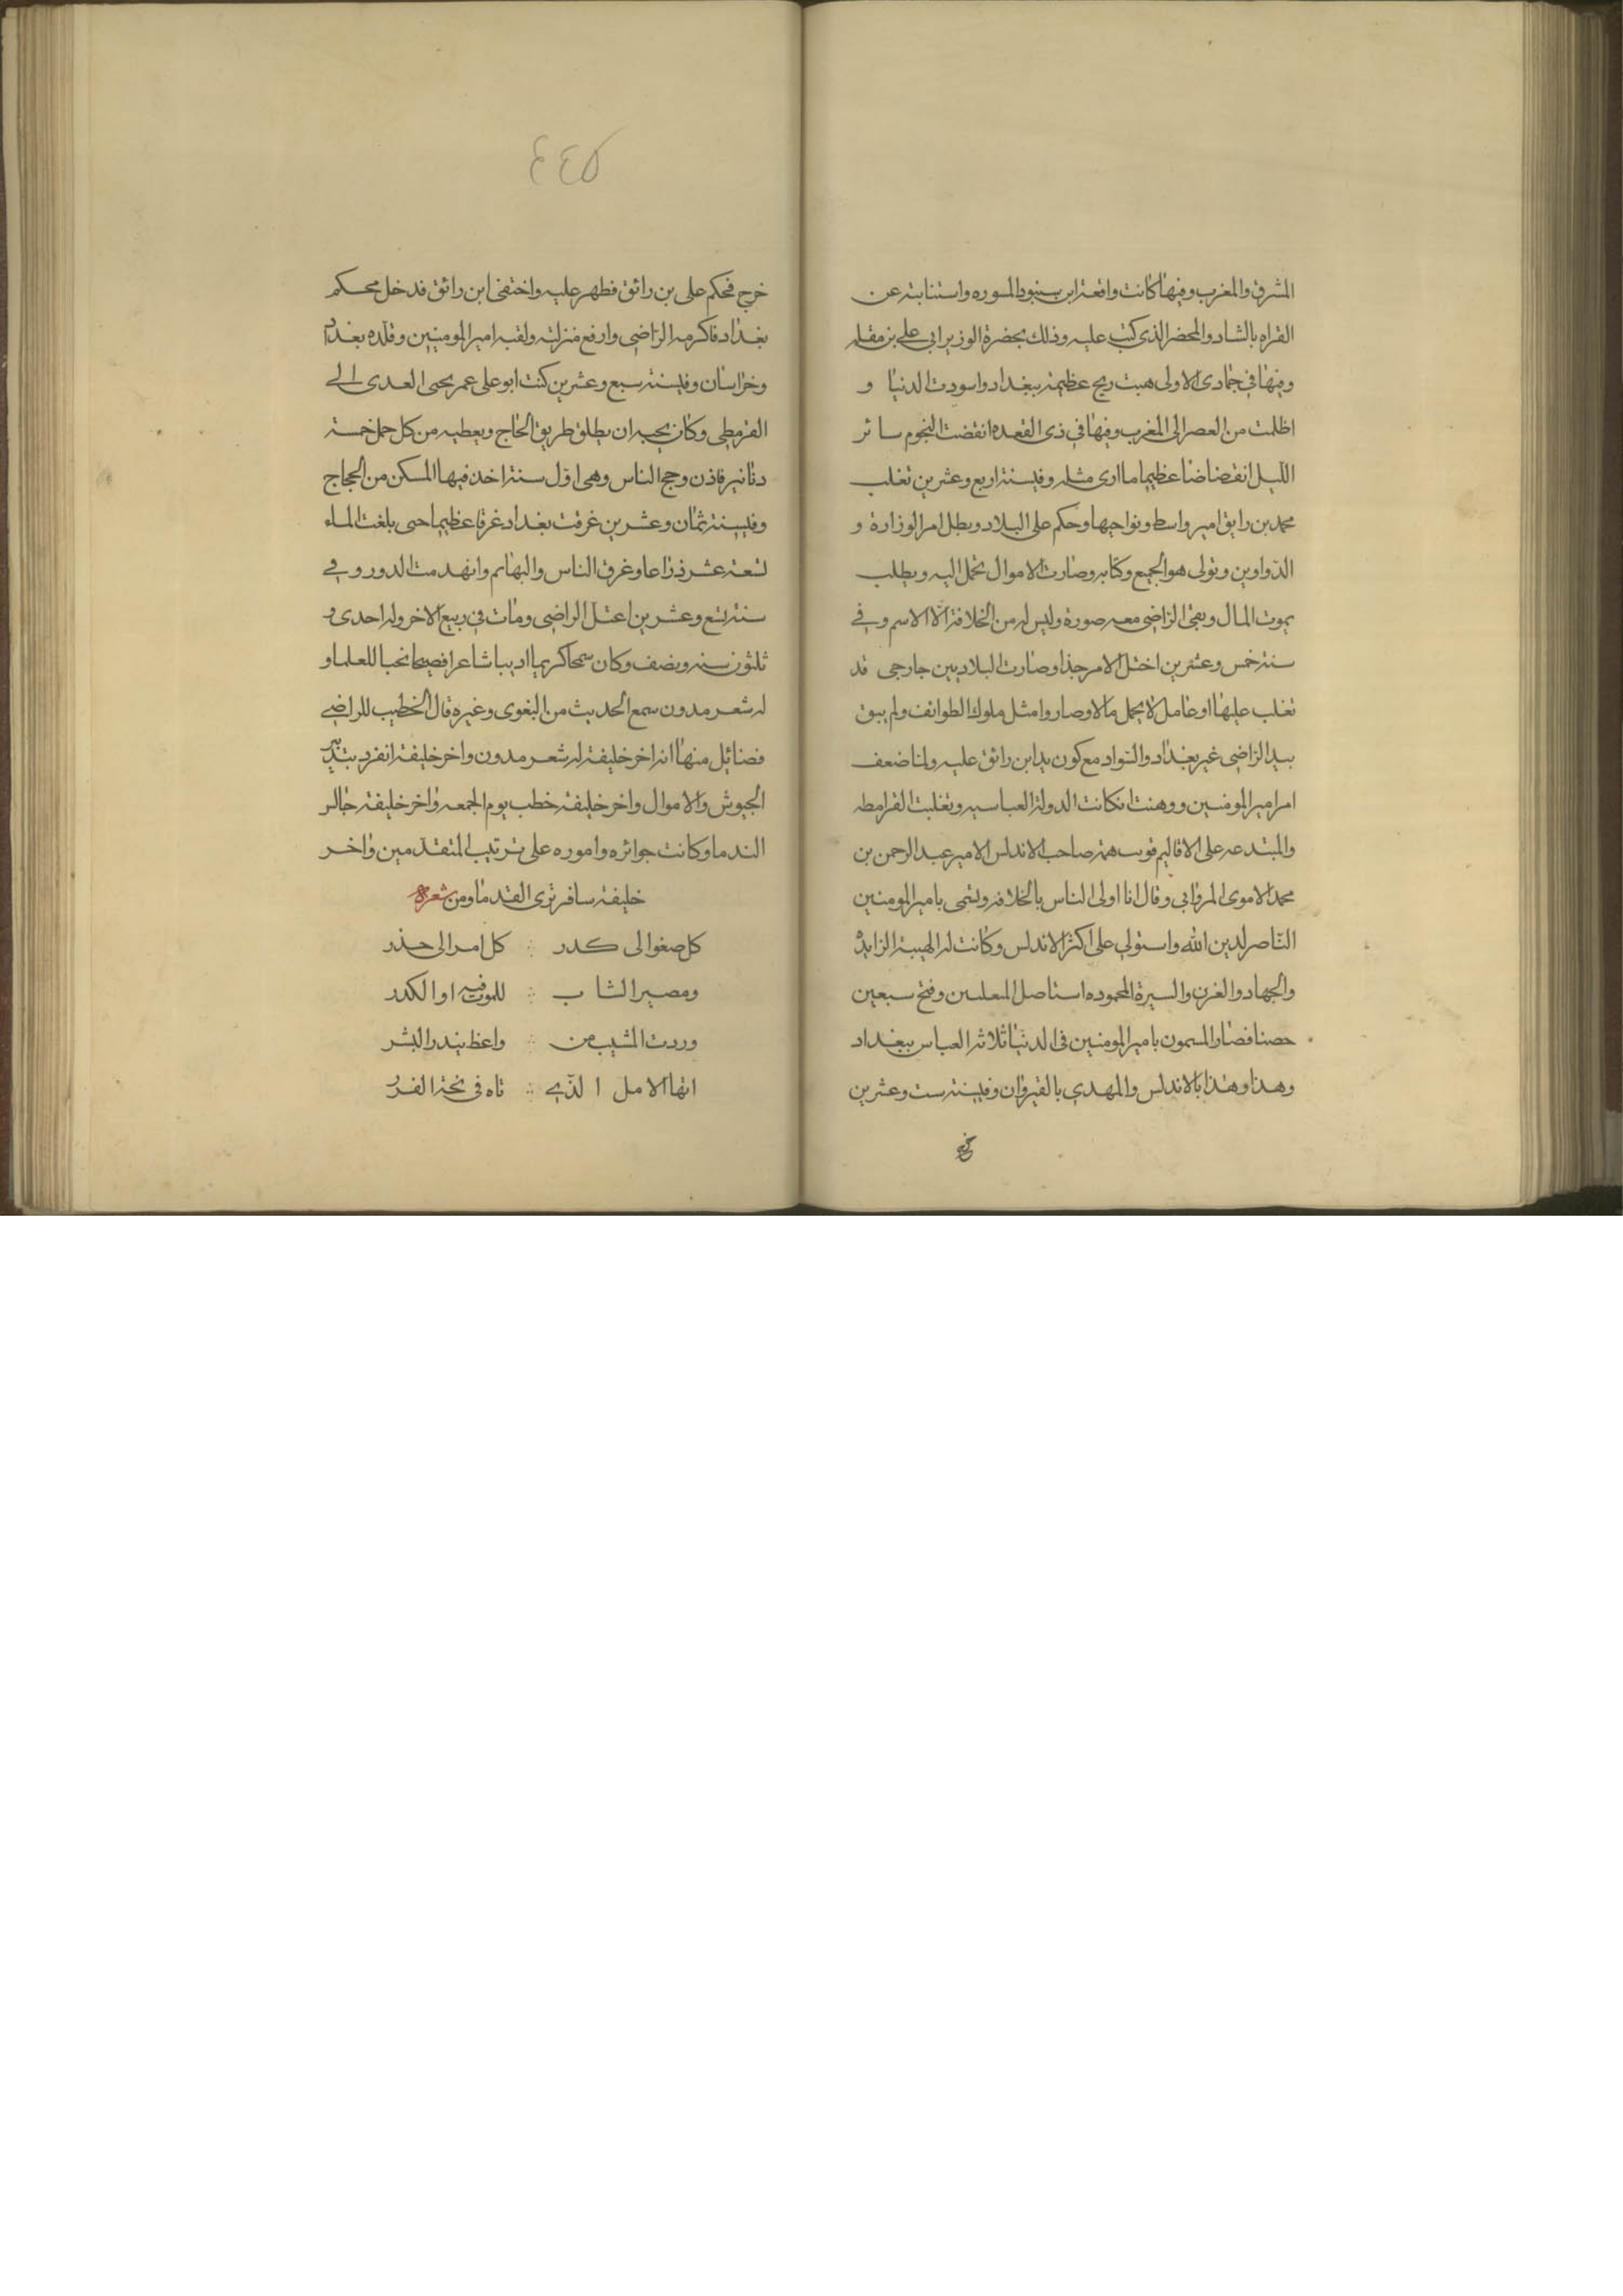 المشرق والمغرب وفيها كانت واقعة ابن سنبود المسوره واستنابته عن
القراه بالشاد والمحضر الذي كتب عليه وذلك بحضرة الوزير ابي علي بن مقله
وفيها في جمادى الاولى هبت ريح عظيمة ببغداد واسودت الدنيا و
اظلمت من العصر الى المغرب وفيها في ذى القعده انقضت النجوم سائر
الليل انقضاضا عظيما ما ارى مثله وفي سنة اربع وعشرين تغلب
محمد بن رايق امير واسط ونواحيها وحكم على البلاد وبطل امر الوزارة و
الدواوين وتولى هو الجميع وكتابه وصارت الاموال تحمل اليه وبطلب
بموت المال وبقى الراضى معه صورة وليس له من الخلافة الا الاسم وفي
سنة خمس وعشرين اختل الامر جدا وصارت البلاد بين خارجى قد
تغلب عليها او عامل لا يحمل مالا وصاروا مثل ملوك الطوائف ولم يبق
بيد الراضى غير بغداد والسواد مع كون يد ابن رائق عليه ولما ضعف
امر امير المومنين ووهنت انكانت الدولة العباسيه وتغلبت القرامطه
والمبتدعه على الاقاليم قويت همة صاحب الاندلس الامير عبد الرحمن بن
محمد الاموى المرواني وقال انا اولى الناس بالخلافه وتسمى بامير المومنين
الناصر لدين الله واستولي على اكثر الاندلس وكانت له الهيبة الزايده
والجهاد والغزن والسيرة المحموده استاصل المعلبين وفتح سبعين
حصنا فصار المسمون بامير المومنين في الدنيا ثلاثة العباس ببغداد
وهذا وهذا بالاندلس والمهدي بالقيروان وفي سنة ست وعشرين
خرج
٤٤٥
خرج فحكم على بن رائق فظهر عليه واختفى ابن رائق فدخل محكم
بغداد فاكرمه الراضى وارفع منزلته ولقبه امير المومنين وقلده بغداد
وخراسان وفي سنة سبع وعشرين كتب ابو على عمر يحيى العدى الى
القرمطى وكان يحبه ان يطلق طريق الحاج ويعطيه من كل حمل خمسة
دنانير فاذن وحج الناس وهى اول سنة اخذ فيها المسكن من الحجاج
وفي سنة ثمان وعشرين غرقت بغداد غرقا عظيما حتى بلغت الماء
تسعة عشر ذراعا وغرق الناس والبهائم وانهدمت الدور وفي
سنة تسع وعشرين اعتل الراضى ومات في ربيع الاخر وله احدى و
ثلثون سنه ونصف وكان سمحا كريما اديبا شاعرا فصيحا محبا للعلما و
له شعر مدون سمع الحديث من البغوى وغيره قال الخطيب للراضي
فضائل منها انه اخر خليفة له شعر مدون واخر خليفة انفرد بتدبير
الجيوش والاموال واخر خليفة خطب يوم الجمعه واخر خليفة جالس
الندما وكانت جوائزه واموره على ترتيب المتقدمين واخر
خليفة سافر بزى القدما ومن شعره
كل صفوا لى كدر ∴ كل امر الى حذر
ومصير الشاب ∴ للموت فيه او الكدر
وردت المشيب من ∴ واعظ يندر البشر
ايها الامل الذي ∴ تاه في نحة الغرر